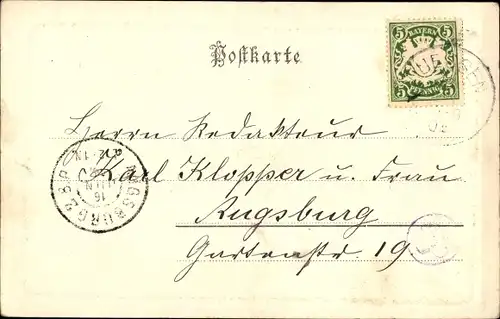 Postkarte
5 BAYERN 5
5 PFENNIG 5
Herrn Redakteur
Karl Klopper u. Frau
Augsburg
Gartenstr. 19
AUGSBURG
16
JUN